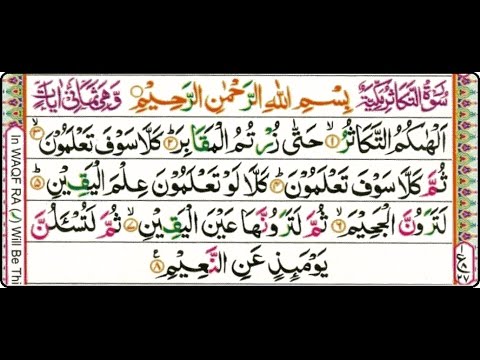 سُوْرَةُ التَّكَاثُرِ مَكِّيَّةٌ بِسْمِ اللّٰهِ الرَّحْمٰنِ الرَّحِيْمِ وَّهِيَ ثَمَانِيْ اٰيَاتٍ
اَلْهٰىكُمُ التَّكَاثُرُ ۙ﴿۱﴾ حَتّٰى زُرْتُمُ الْمَقَابِرَ ؕ﴿۲﴾ كَلَّا سَوْفَ تَعْلَمُوْنَ ۙ﴿۳﴾
ثُمَّ كَلَّا سَوْفَ تَعْلَمُوْنَ ؕ﴿۴﴾ كَلَّا لَوْ تَعْلَمُوْنَ عِلْمَ الْيَقِيْنِ ؕ﴿۵﴾
لَتَرَوُنَّ الْجَحِيْمَ ۙ﴿۶﴾ ثُمَّ لَتَرَوُنَّهَا عَيْنَ الْيَقِيْنِ ۙ﴿۷﴾ ثُمَّ لَتُسْئَلُنَّ
يَوْمَئِذٍ عَنِ النَّعِيْمِ ﴿۸﴾
In WAQF RA (ر) Will Be Thi